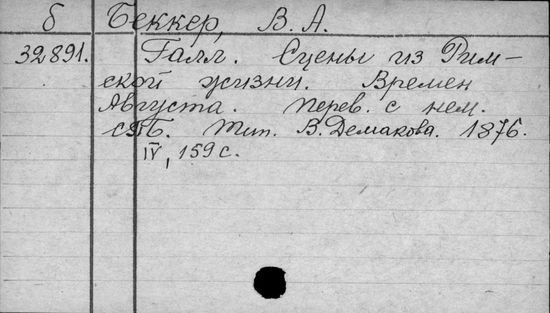 б Беккер, В. А.
32891. Галл. Сцены из Рим-
ской жизни. Времен
Августа. Перев. с нем.
СПБ. Тип. В. Демакова. 1876.
IV, 159 с.